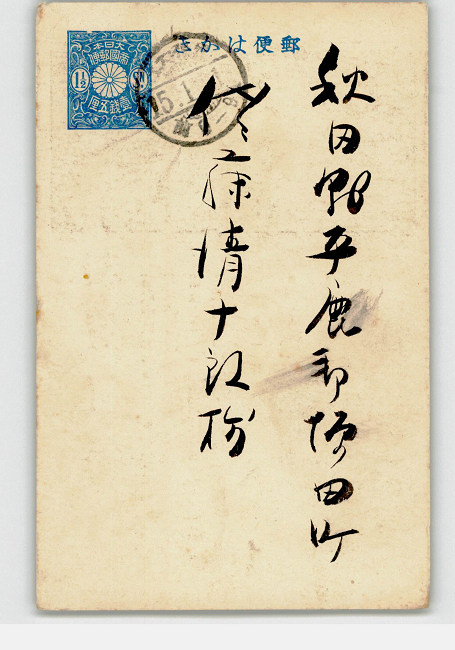 郵便はかき
大日本
帝國郵便
1½ Sn
壹錢五厘
秋田縣平鹿郡増田町
佐藤清十郎様